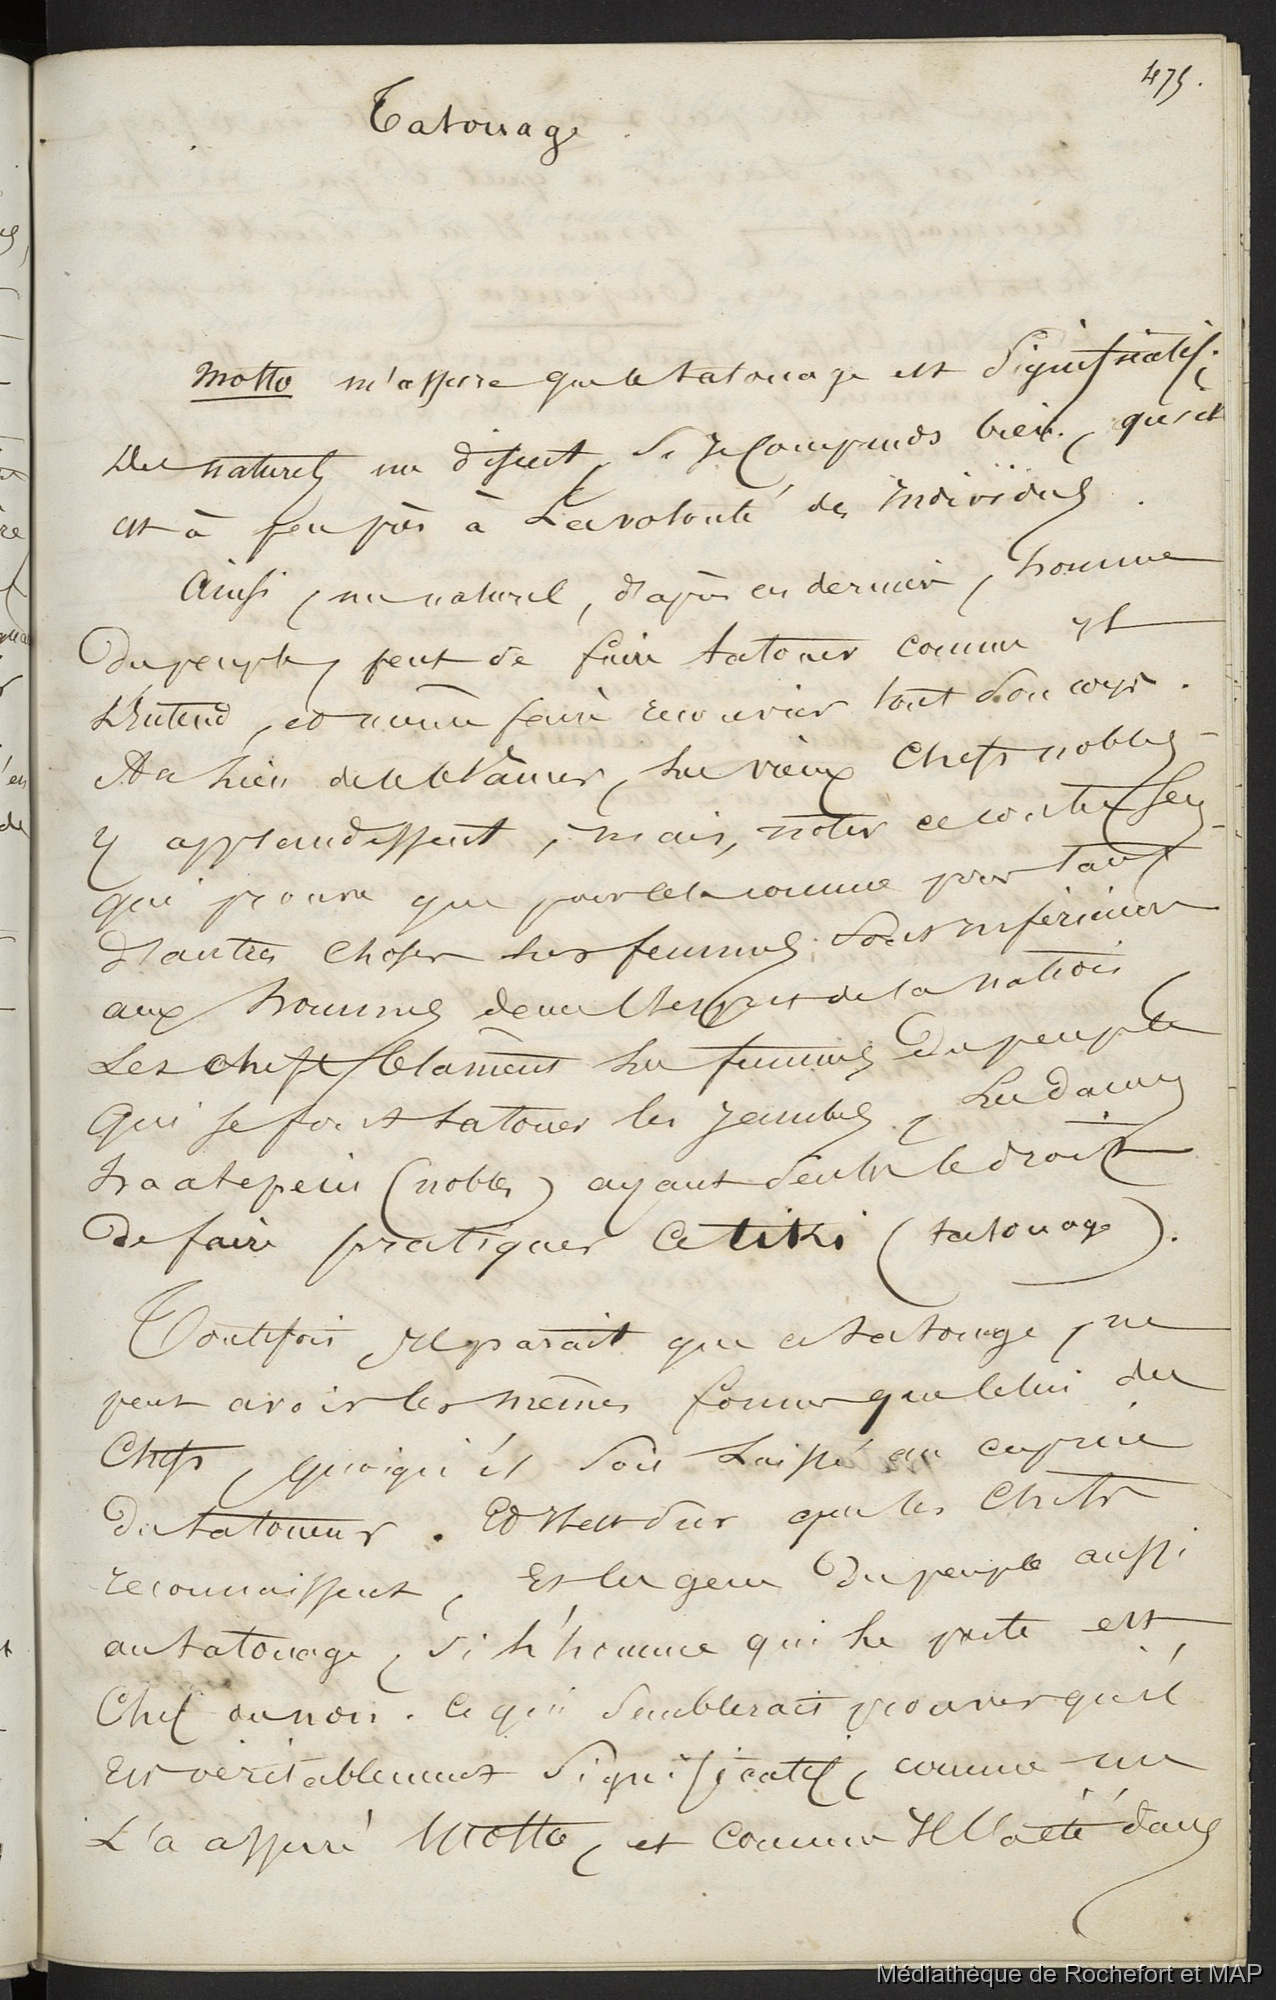 475.
Tatouage
Motto m'assure que le tatouage est significatif.
Des naturels me disent, si je comprends bien, qu'il
est à peu près à la volonté des individus.
Ainsi, un naturel, d'après ces derniers, homme
du peuple, peut se faire tatouer comme il
l'entend, et même faire recouvrir tout son corps.
Au lieu de le blâmer, les vieux chefs nobles
y applaudissent, mais, noter ce contre sens
qui prouve que pour cela comme pour tant
d'autres choses les femmes sont inférieures
aux hommes dans l'esprit de la nation,
Les chefs blament les femmes du peuple
qui se font tatouer les jambes, les dames
haatepeiu (nobles) ayant seules le droit
de faire pratiquer ce tiki (tatouage).
Toutefois il parait que ce tatouage, ne
peut avoir les mêmes formes que celui des
chefs, quoiqu'il soit laissé au caprice
du tatoueur. Et il est sur que les chefs
reconnaissent, et les gens du peuple aussi
au tatouage, si l'homme qui le porte est
chef ou non. Ce qui semblerait prouver qu'il
est véritablement significatif, comme me
l'a assuré Motto, et comme il l'a été dans
Médiathèque de Rochefort et MAP